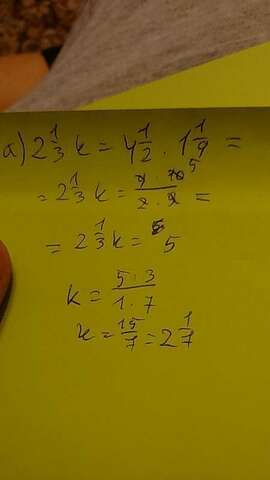 a) 2 1/3 k = 4 1/2 · 1 1/9 =
= 2 1/3 k = 9 · 10 5 / 2 · 9 =
= 2 1/3 k = 5
k = 5 · 3 / 1 · 7
k = 15/7 = 2 1/7